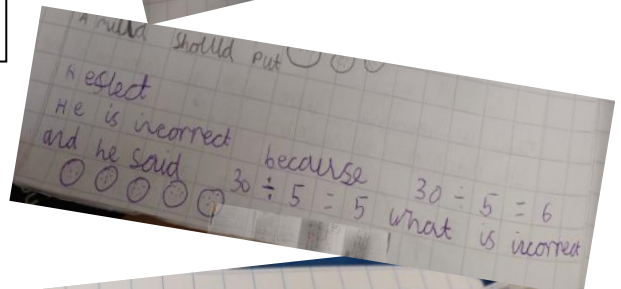 should put
Reflect
He is incorrect because 30 ÷ 5 = 6
and he said 30 ÷ 5 = 5 what is incorrect